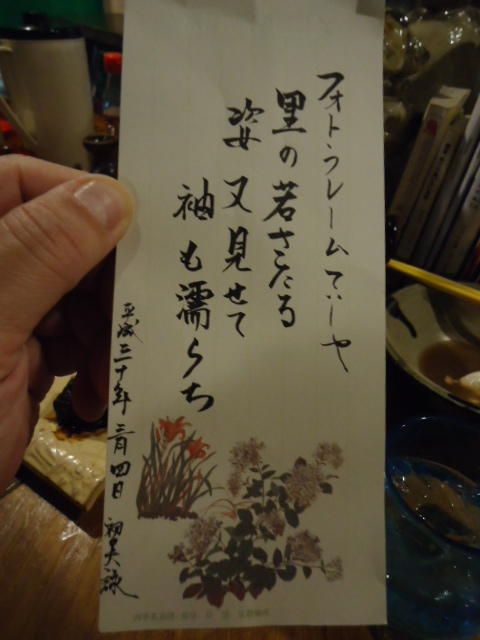 フォトフレームてぃしや
里の若さたる
姿又見せて
袖も濡らち
平成三十年 三月四日